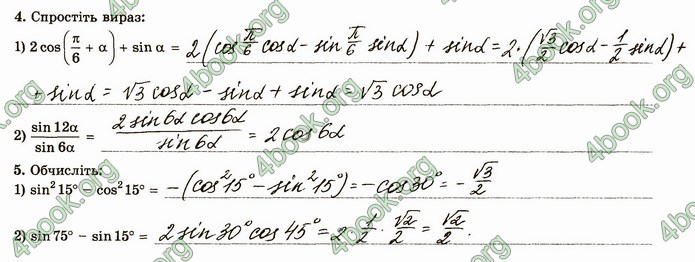 4. Спростіть вираз:
1) 2 cos(π/6 + α) + sin α = 2(cos π/6 cos α − sin π/6 sin α) + sin α = 2·(√3/2 cos α − 1/2 sin α) +
+ sin α = √3 cos α − sin α + sin α = √3 cos α
2) sin 12α / sin 6α = 2 sin 6α cos 6α / sin 6α = 2 cos 6α
5. Обчисліть:
1) sin² 15° − cos² 15° = −(cos² 15° − sin² 15°) = −cos 30° = −√3/2
2) sin 75° − sin 15° = 2 sin 30° cos 45° = 2 1/2 · √2/2 = √2/2.
4book.org
4book.org
4book.org
4book.org
4book.org
4book.org